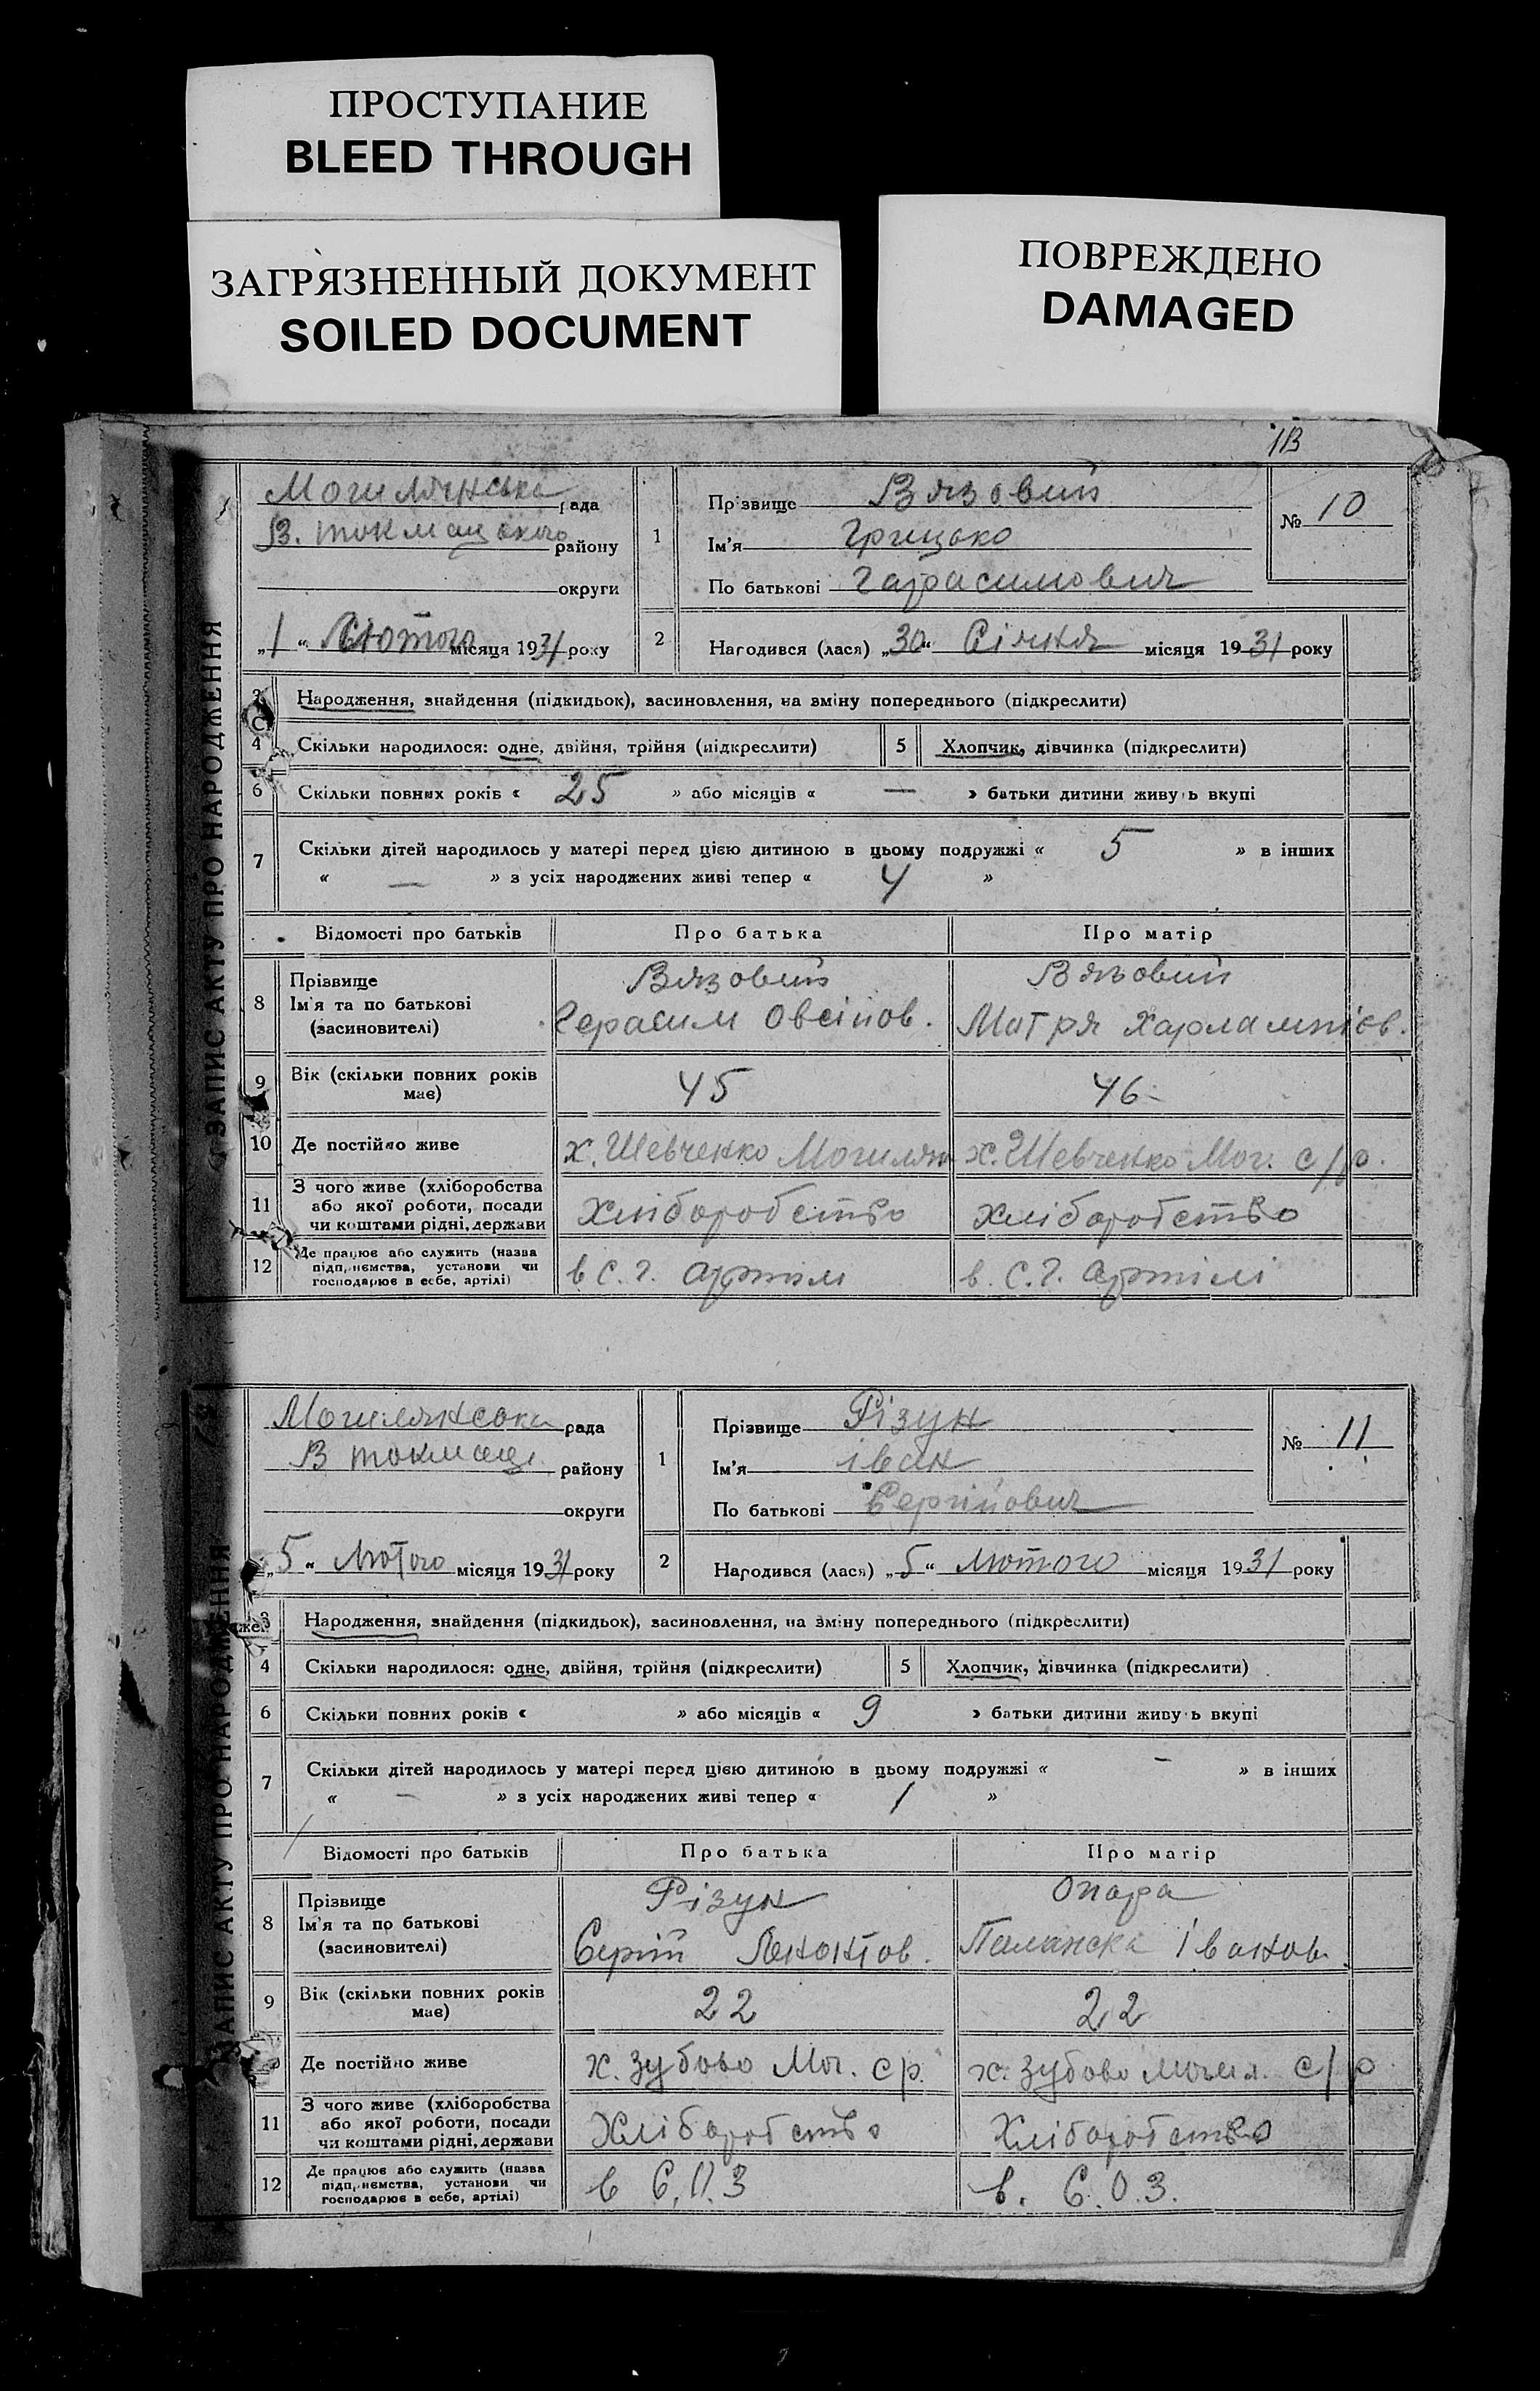 ПРОСТУПАНИЕ
BLEED THROUGH
ЗАГРЯЗНЕННЫЙ ДОКУМЕНТ
SOILED DOCUMENT
ПОВРЕЖДЕНО
DAMAGED
ЗАПИС АКТУ ПРО НАРОДЖЕННЯ
Могилянська рада
В. токмацького району
округи
„1“ Лютого місяця 1931 року
1 Прізвище Вязовий
Ім'я Грицько
По батькові Гарасимович
№ 10
2 Народився (лася) „30“ Січня місяця 1931 року
Народження, знайдення (підкидьок), засиновлення, на зміну попереднього (підкреслити)
4 Скільки народилося: одне, двійня, трійня (підкреслити) 5 Хлопчик, дівчинка (підкреслити)
6 Скільки повних років « 25 » або місяців « — » батьки дитини живуть вкупі
7 Скільки дітей народилось у матері перед цією дитиною в цьому подружжі « 5 » в інших
« — » з усіх народжених живі тепер « 4 »
Відомості про батьків Про батька Про матір
8 Прізвище
Ім'я та по батькові
(засиновителі)
Вязовий
Герасим Овсіпов.
Вязовий
Мотря Харлампієв.
9 Вік (скільки повних років
має)
45 46
10 Де постійно живе х. Шевченко Могилян х. Шевченко Мог. с/р.
11 З чого живе (хліборобства
або якої роботи, посади
чи коштами рідні, держави
Хліборобство Хліборобство
12 Де працює або служить (назва
підприємства, установи чи
господарює в себе, артілі)
в С. г. артіл в. С. г. артілі
ЗАПИС АКТУ ПРО НАРОДЖЕННЯ
Могилянська рада
В токмац. району
округи
„5“ Лютого місяця 1931 року
1 Прізвище Різун
Ім'я іван
По батькові Сергійович
№ 11
2 Народився (лася) „5“ Лютого місяця 1931 року
3 Народження, знайдення (підкидьок), засиновлення, на зміну попереднього (підкреслити)
4 Скільки народилося: одне, двійня, трійня (підкреслити) 5 Хлопчик, дівчинка (підкреслити)
6 Скільки повних років « » або місяців « 9 » батьки дитини живуть вкупі
7 Скільки дітей народилось у матері перед цією дитиною в цьому подружжі « — » в інших
« — » з усіх народжених живі тепер « 1 »
Відомості про батьків Про батька Про матір
8 Прізвище
Ім'я та по батькові
(засиновителі)
Різун
Сергій
Опара
Іванов.
9 Вік (скільки повних років
має)
22 22
Де постійно живе х. Зубово Мог. с р. х. Зубово Могил. с/р
11 З чого живе (хліборобства
або якої роботи, посади
чи коштами рідні, держави
Хліборобство Хліборобство
12 Де працює або служить (назва
підприємства, установи чи
господарює в себе, артілі)
в С. О. З в. С. О. З.